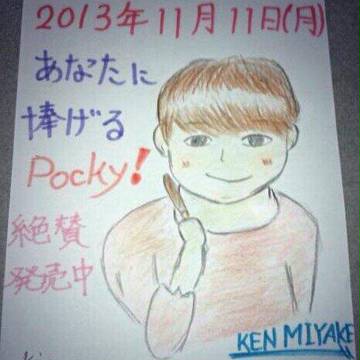 2013年11月11日(月)
あなたに
捧げる
Pocky!
絶賛
発売中
KEN MIYAKE